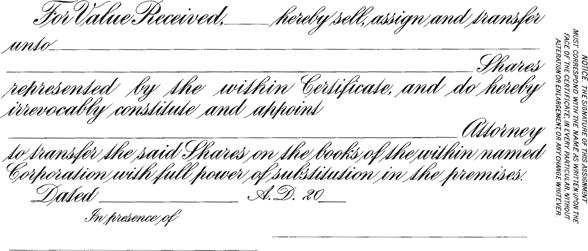 For Value Received, ____ hereby sell, assign and transfer
unto
Shares
represented by the within Certificate, and do hereby
irrevocably constitute and appoint
Attorney
to transfer the said Shares on the books of the within named
Corporation with full power of substitution in the premises.
Dated ____ A.D. 20__
In presence of
NOTICE. THE SIGNATURE OF THIS ASSIGNMENT
MUST CORRESPOND WITH THE NAME AS WRITTEN UPON THE
FACE OF THE CERTIFICATE, IN EVERY PARTICULAR, WITHOUT
ALTERATION OR ENLARGEMENT OR ANY CHANGE WHATEVER.